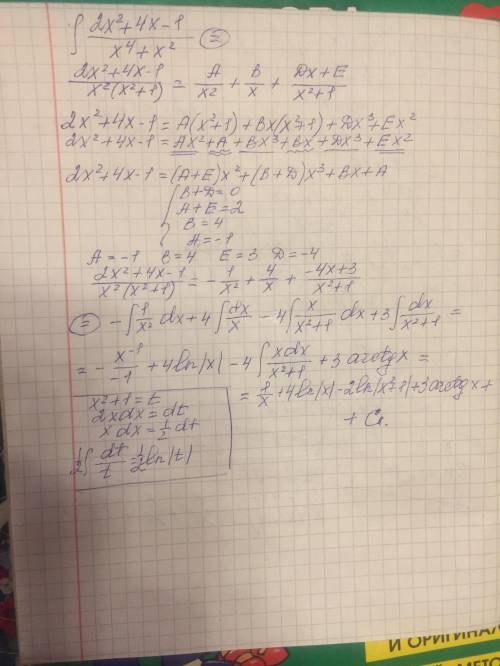 ∫ (2x²+4x-1)/(x⁴+x²) ⊜
(2x²+4x-1)/(x²(x²+1)) = A/x² + B/x + (Dx+E)/(x²+1)
2x²+4x-1 = A(x²+1)+Bx(x²+1)+Dx³+Ex²
2x²+4x-1 = Ax²+A+Bx³+Bx+Dx³+Ex²
2x²+4x-1 = (A+E)x²+(B+D)x³+Bx+A
{ B+D=0
A+E=2
B=4
A=-1
A=-1 B=4 E=3 D=-4
(2x²+4x-1)/(x²(x²+1)) = -1/x² + 4/x + (-4x+3)/(x²+1)
⊜ -∫ 1/x² dx + 4∫ dx/x - 4∫ x/(x²+1) dx + 3∫ dx/(x²+1) =
= - x⁻¹/-1 + 4ln|x| - 4∫ xdx/(x²+1) + 3 arctgx =
= 1/x + 4ln|x| - 2ln|x²+1| + 3arctgx +
+ C.
x²+1=t
2xdx=dt
xdx=½dt
½∫ dt/t = ½ln|t|
И ОРИГИНАЛ